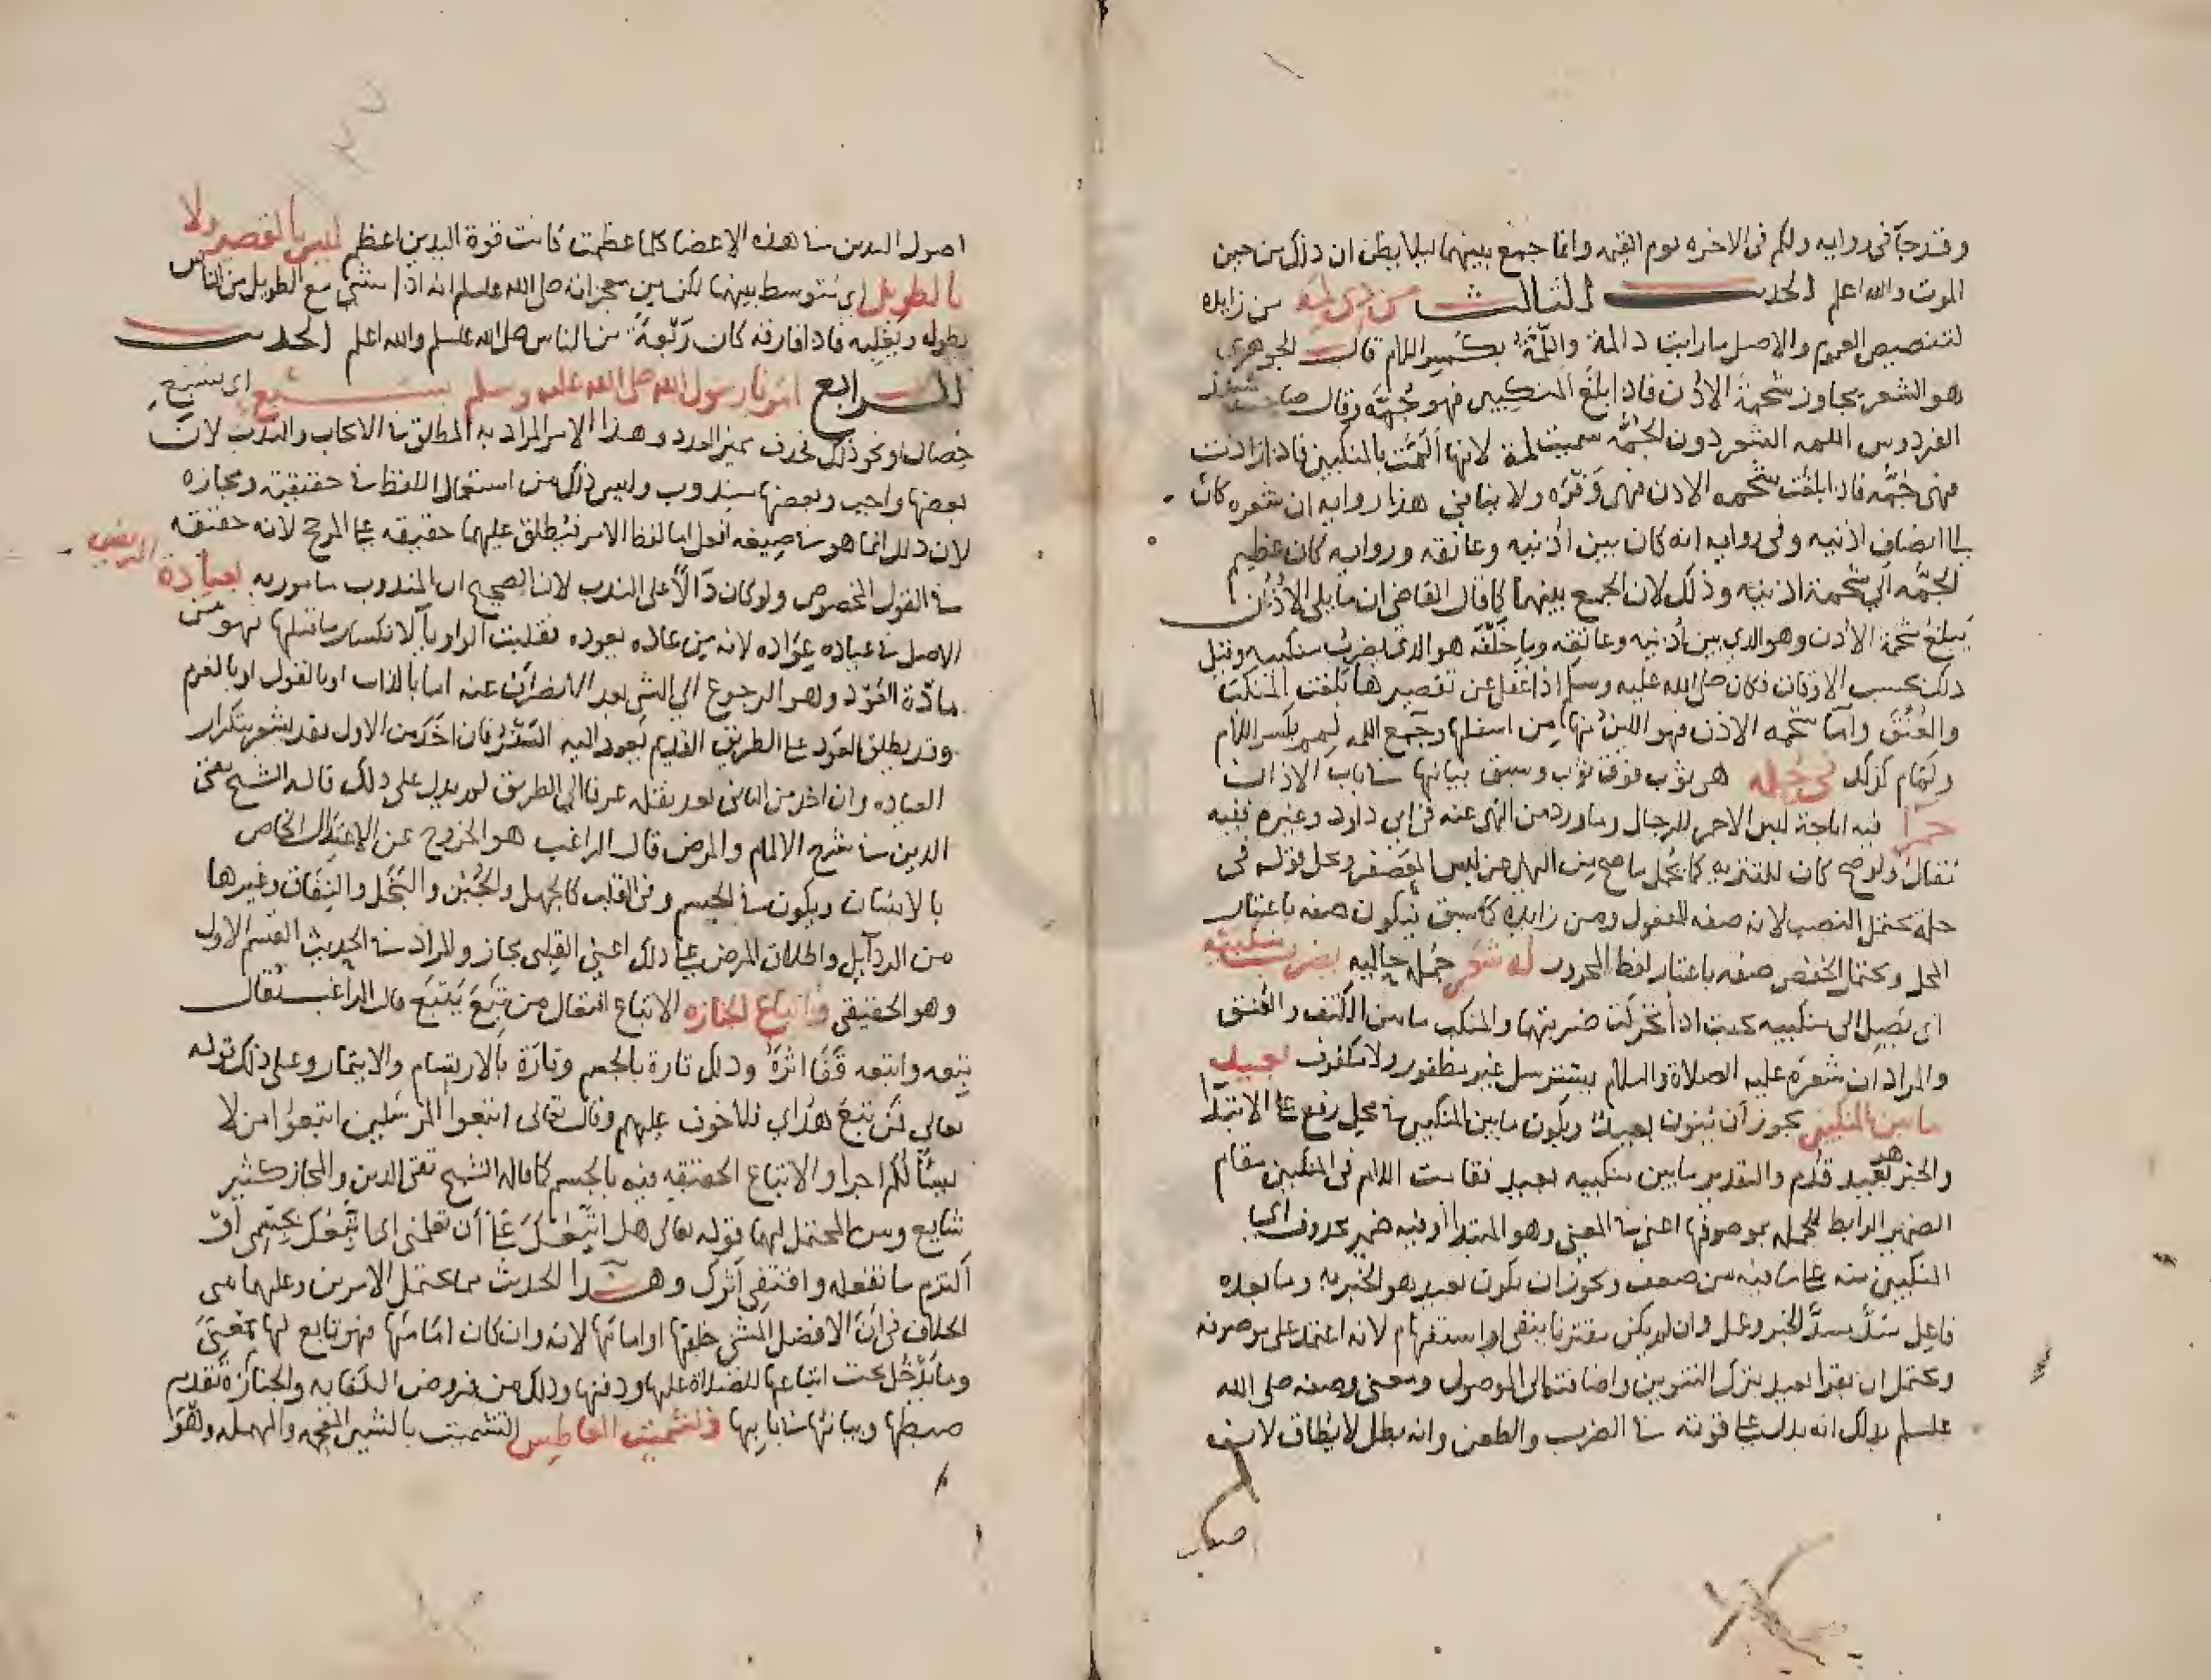 وقد جا فى روايه ولكم فى الاخره يوم القيمه وانما جمع بينهما ليلا يظن ان ذلك من حين
الموت والله اعلم الحديث الثالث من ذى لمة من زايده
لتنصيص العموم والاصل ما رايت ذا لمة واللِّمَّة بكسر اللام قال الجوهرى
هو الشعر يجاوز شحمة الاذن فاذا بلغ المنكبين فهو جُمّة وقال صاحب
الفردوس اللمه الشعر دون الجُمّه سميت لمة لانها المَّت بالمنكبين فاذا زادت
فهى جُمّه فاذا بلغت شحمه الاذن فهى وَفْرَه ولا ينافى هذا روايه ان شعره كان
الى انصاف اذنيه وفى روايه انه كان بين اذنيه وعاتقه وروايه كان عظيم
الجمّه الى شحمة اذنيه وذلك لان الجمع بينهما كما قال القاضى ان ما يلى الاُذُن
يبلغ شحمة الاذن وهو الذى بين أذنيه وعاتقه وما خلفَه هو الذى يضرب منكبيه وقيل
ذلك بحسب الاوقات فكان صلى الله عليه وسلم اذا غفل عن تقصيرها بلغت المنكب
والعُنُقَ واما شحمه الاذن فهو اللين منها من اسفلها وجمع اللمه لِمم بكسر اللام
ولِمام كذلك فى حُلة هى ثوب فوق ثوب وسبق بيانها فى باب الاذان
حمرآ فيه اباحة لبس الاحمر للرجال وما ورد من النهى عنه فى ابى داود وغيره ففيه
مقال ولو صح كان للتنزيه كما يحمل ما صح من النهى عن لبس المعصفر ومحل قوله فى
حلة يحتمل النصب لانه صفه للمفعول ومن زايده كما سبق فيكون صفه باعتبار
المحل ويحتمل الخفض صفه باعتبار لفظ المجرور له شعر جُمله حاليه يضرب منكبيه
اى يَصِل الى منكبيه بحيث اذا تحركت ضربتهما والمنكب ما بين الكتف والعُنق
والمراد ان شعره عليه الصلاة والسلام مسترسل غير مظفور ولا ملفوف بعيد
ما بين المنكبين يجوز أن يُنون بعيد ويكون ما بين المنكبين فى محل رفع على الابتدآ
والخبر بعيد قُدِّم والتقدير ما بين منكبيه بعيد فقامت اللام فى المنكبين مقام
الضمير الرابط للجمله بموصوفها اعنى فى المعنى وهو المبتدا أو فيه ضمير محذوف اى
المنكبين منه على ما فيه من ضعف ويجوز ان يكون بعيد هو الخبر به وما بعده
فاعِل سَدَّ مسدَّ الخبر وعمل وان لم يكن مقترنا بنفى او استفهام لانه اعتمد على موصوفه
ويحتمل ان يقرا بعيد بترك التنوين واضافته الى الموصول ومعنى وصفه صلى الله
عليه وسلم بذلك انه يدل على قوته فى الضرب والطعن وانه بطل لا يُطاق لان
اصول اليدين فى هذه الاعضا كلما عظمت كانت قوة اليدين اعظم ليس بالقصير ولا
بالطويل اى متوسط بينهما لكن من معجزاته صلى الله عليه وسلم انه اذا مشى مع الطويل من الناس
يطوله ويعليه فاذا فارقه كان رَبْعَةً من الناس صلى الله عليه وسلم والله اعلم الحديث
الرابع امرنا رسول الله صلى الله عليه وسلم بسبع اى بسبع
خصال او نحو ذلك فحذف مميز العدد وهذا الامر المراد به المطلق فى الايجاب والندب لانّ
بعضها واجب وبعضها مندوب وليس ذلك من استعمال اللفظ فى حقيقته ومجازه
لان ذلك انما هو فى صيغه افعل اما لفظ الامر فيُطلق عليهما حقيقه على المرجح لانه حقيقه
فى القول المخصوص ولو كان دَالاًّ على الندب لان الصحيح ان المندوب مامور به بعيادة المريض
الاصل فى عياده عِوَاده لانه من عاده يعوده فقلبت الواو يآ لانكسار ما قبلها فهو من
مادّة العَوْد وهو الرجوع الى الشى بعد الانصراف عنه اما بالذات او بالقول او بالعزم
وقد يطلق العَود على الطريق القديم يَعود اليه السَّفْر فان اخذ من الاول فقد يشعر بتكرار
العياده وان اخذ من الثانى بعد نقله عرفا الى الطريق لم يدل على ذلك قاله الشيخ تقى
الدين فى شرح الالمام والمرض قال الراغب هو الخروج عن الاعتدال الخاص
بالانسان ويكون فى الجسم وفى القلب كالجهل والجُبن والبُخل والنِفَاق وغيرها
من الرذآيل واطلاق المرض على ذلك اعنى القلبى مجاز والمراد فى الحديث القسم الاول
وهو الحقيقى واتباع الجنازه الاتباع افتعال من تَبِعَ يَتْبَع قال الراغب يُقال
تبعه واتبعه قَفَا اثَرَهُ وذلك تارة بالجسم وتارَة بالارتسام والايتمار وعلى ذلك قوله
تعالى فمن تَبِعَ هُدَاى فلا خوف عليهم وقال تعالى اتبعوا المرسلين اتبعوا من لا
يسألكم اجرا والاتباع الحقيقه فيه بالجسم كما قاله الشيخ تقى الدين والمجاز كثير
شايع ومن المحتمل لهما قوله تعالى هل اتبعك على أن تعلمنى اى اتبعك بجسمى او
ألتزم ما تفعله واقتفى أثرك وهذا الحديث مما يحتمل الامرين وعليهما
الخلاف فى ان الافضل المشى خلفها او امامها لانه وان كان امامها فهو تابع لها بمعنى
وما يدخل تحت اتباعها للصلاة عليها ودفنها وذلك من فروض الكفايه والجنازه تقديم
ضبطها وبيانها فى بابها وتشميت العاطس التشميت بالشين المعجمه والمهمله وهو